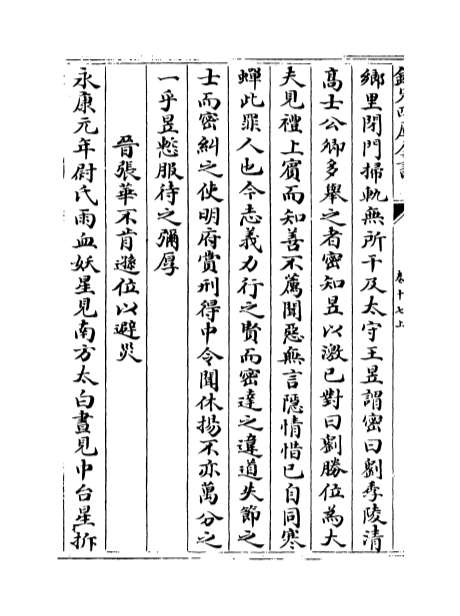 鄉里閉門掃軌無所干及太守王昱謂密曰劉季陵清
高士公卿多舉之者密知昱以激己對曰劉勝位為大
夫見禮上賓而知善不薦聞惡無言隱情惜己自同寒
蟬此罪人也今志義力行之賢而密達之違道失節之
士而密糾之使明府賞刑得中令聞休揚不亦萬分之
一乎昱慙服待之彌厚
晉張華不肯遜位以避災
永康元年尉氏雨血妖星見南方太白晝見中台星拆
卷十七上